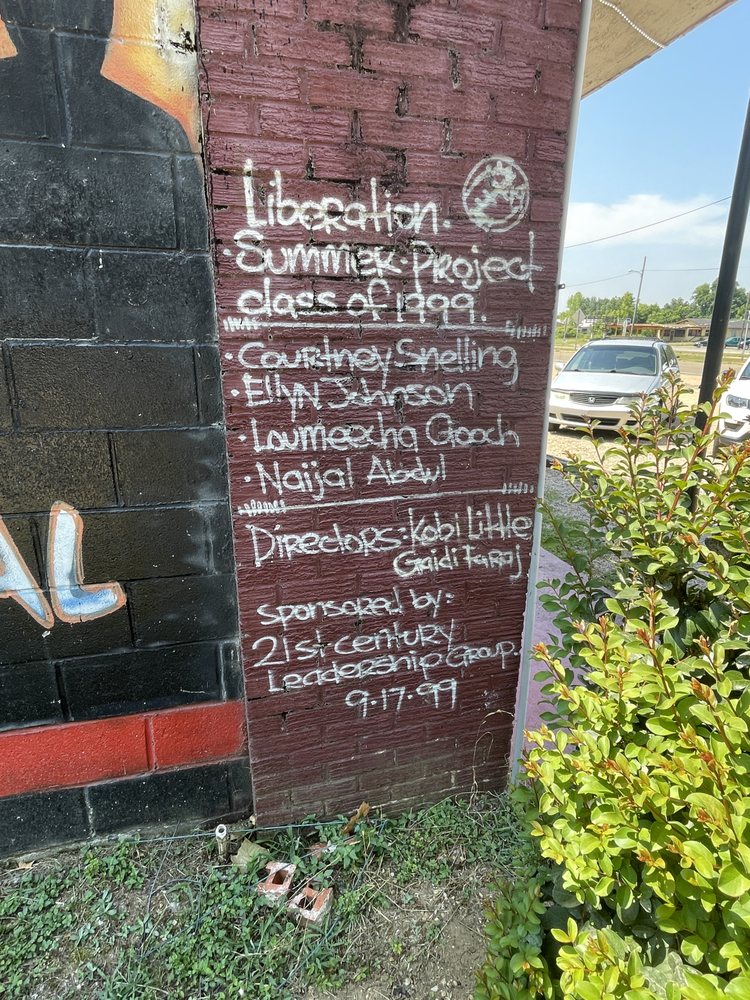 Liberation.
·Summer·Project
class of 1999.
·Courtney Snelling
·Ellyn Johnson
·Loumeecha Gooch
·Naijal Abdul
Directors: Kobi Little
Gaidi Faraj
sponsored by:
21st century
Leadership Group.
9·17·99
AL